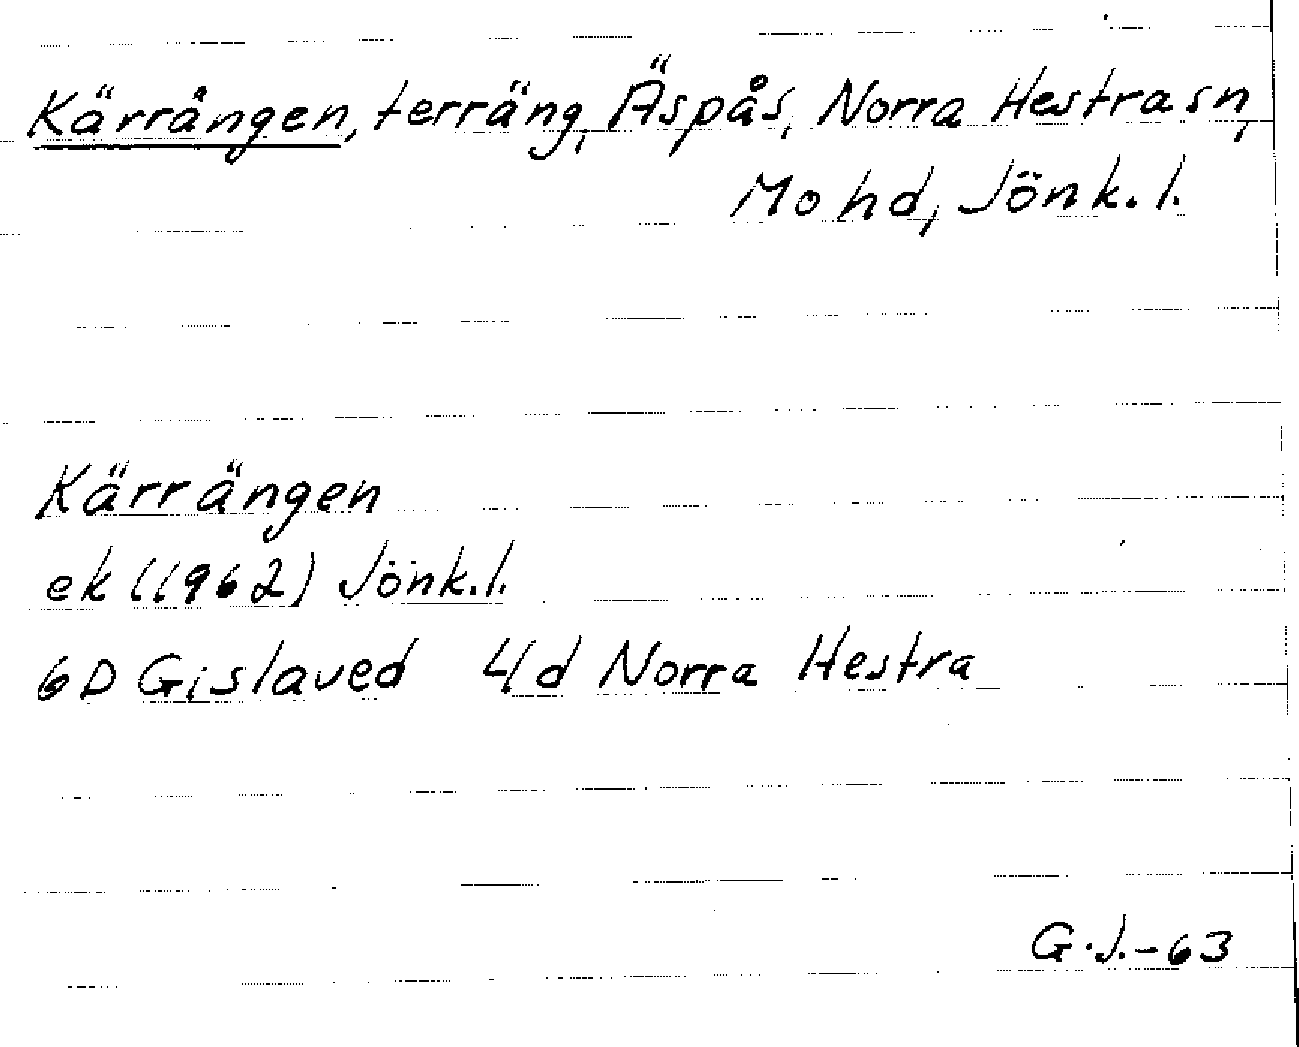 Kärrängen, terräng, Äspås, Norra Hestra sn,
Mo hd, Jönk.l.
Kärrängen
ek (1962) Jönk.l.
6D Gislaved 4d Norra Hestra
G.J.-63